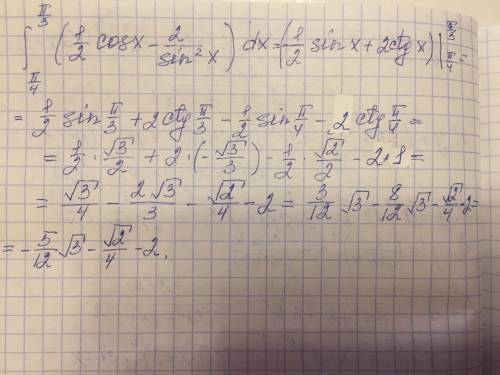 ∫_{π/4}^{π/3} (1/2 cosx - 2/sin²x) dx = (1/2 sinx + 2ctgx) |_{π/4}^{π/3} =
= 1/2 sin π/3 + 2ctg π/3 - 1/2 sin π/4 - 2 ctg π/4 =
= 1/2 · √3/2 + 2·(-√3/3) - 1/2 · √2/2 - 2·1 =
= √3/4 - 2√3/3 - √2/4 - 2 = 3/12 √3 - 8/12 √3 - √2/4 - 2 =
= - 5/12 √3 - √2/4 - 2.